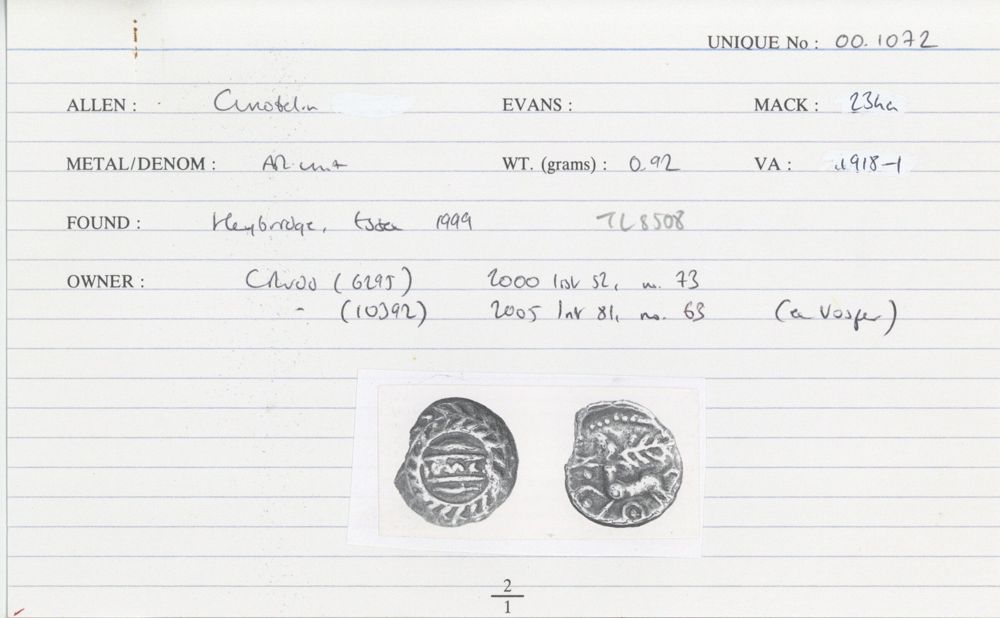 UNIQUE No : 00.1072
ALLEN : Cunobelin EVANS : MACK : 234a
METAL/DENOM : AR unit WT. (grams) : 0.92 VA : 1918-1
FOUND : Heybridge, Essex 1999 TL8508
OWNER : CR (6295) 2000 list 52, no. 73
- (10392) 2005 list 81, no. 63 (ex Vosper)
2
1